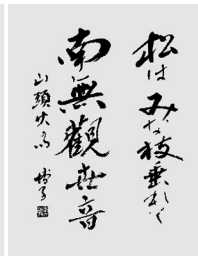 松は みな枝垂れて
南無観世音
山頭火句